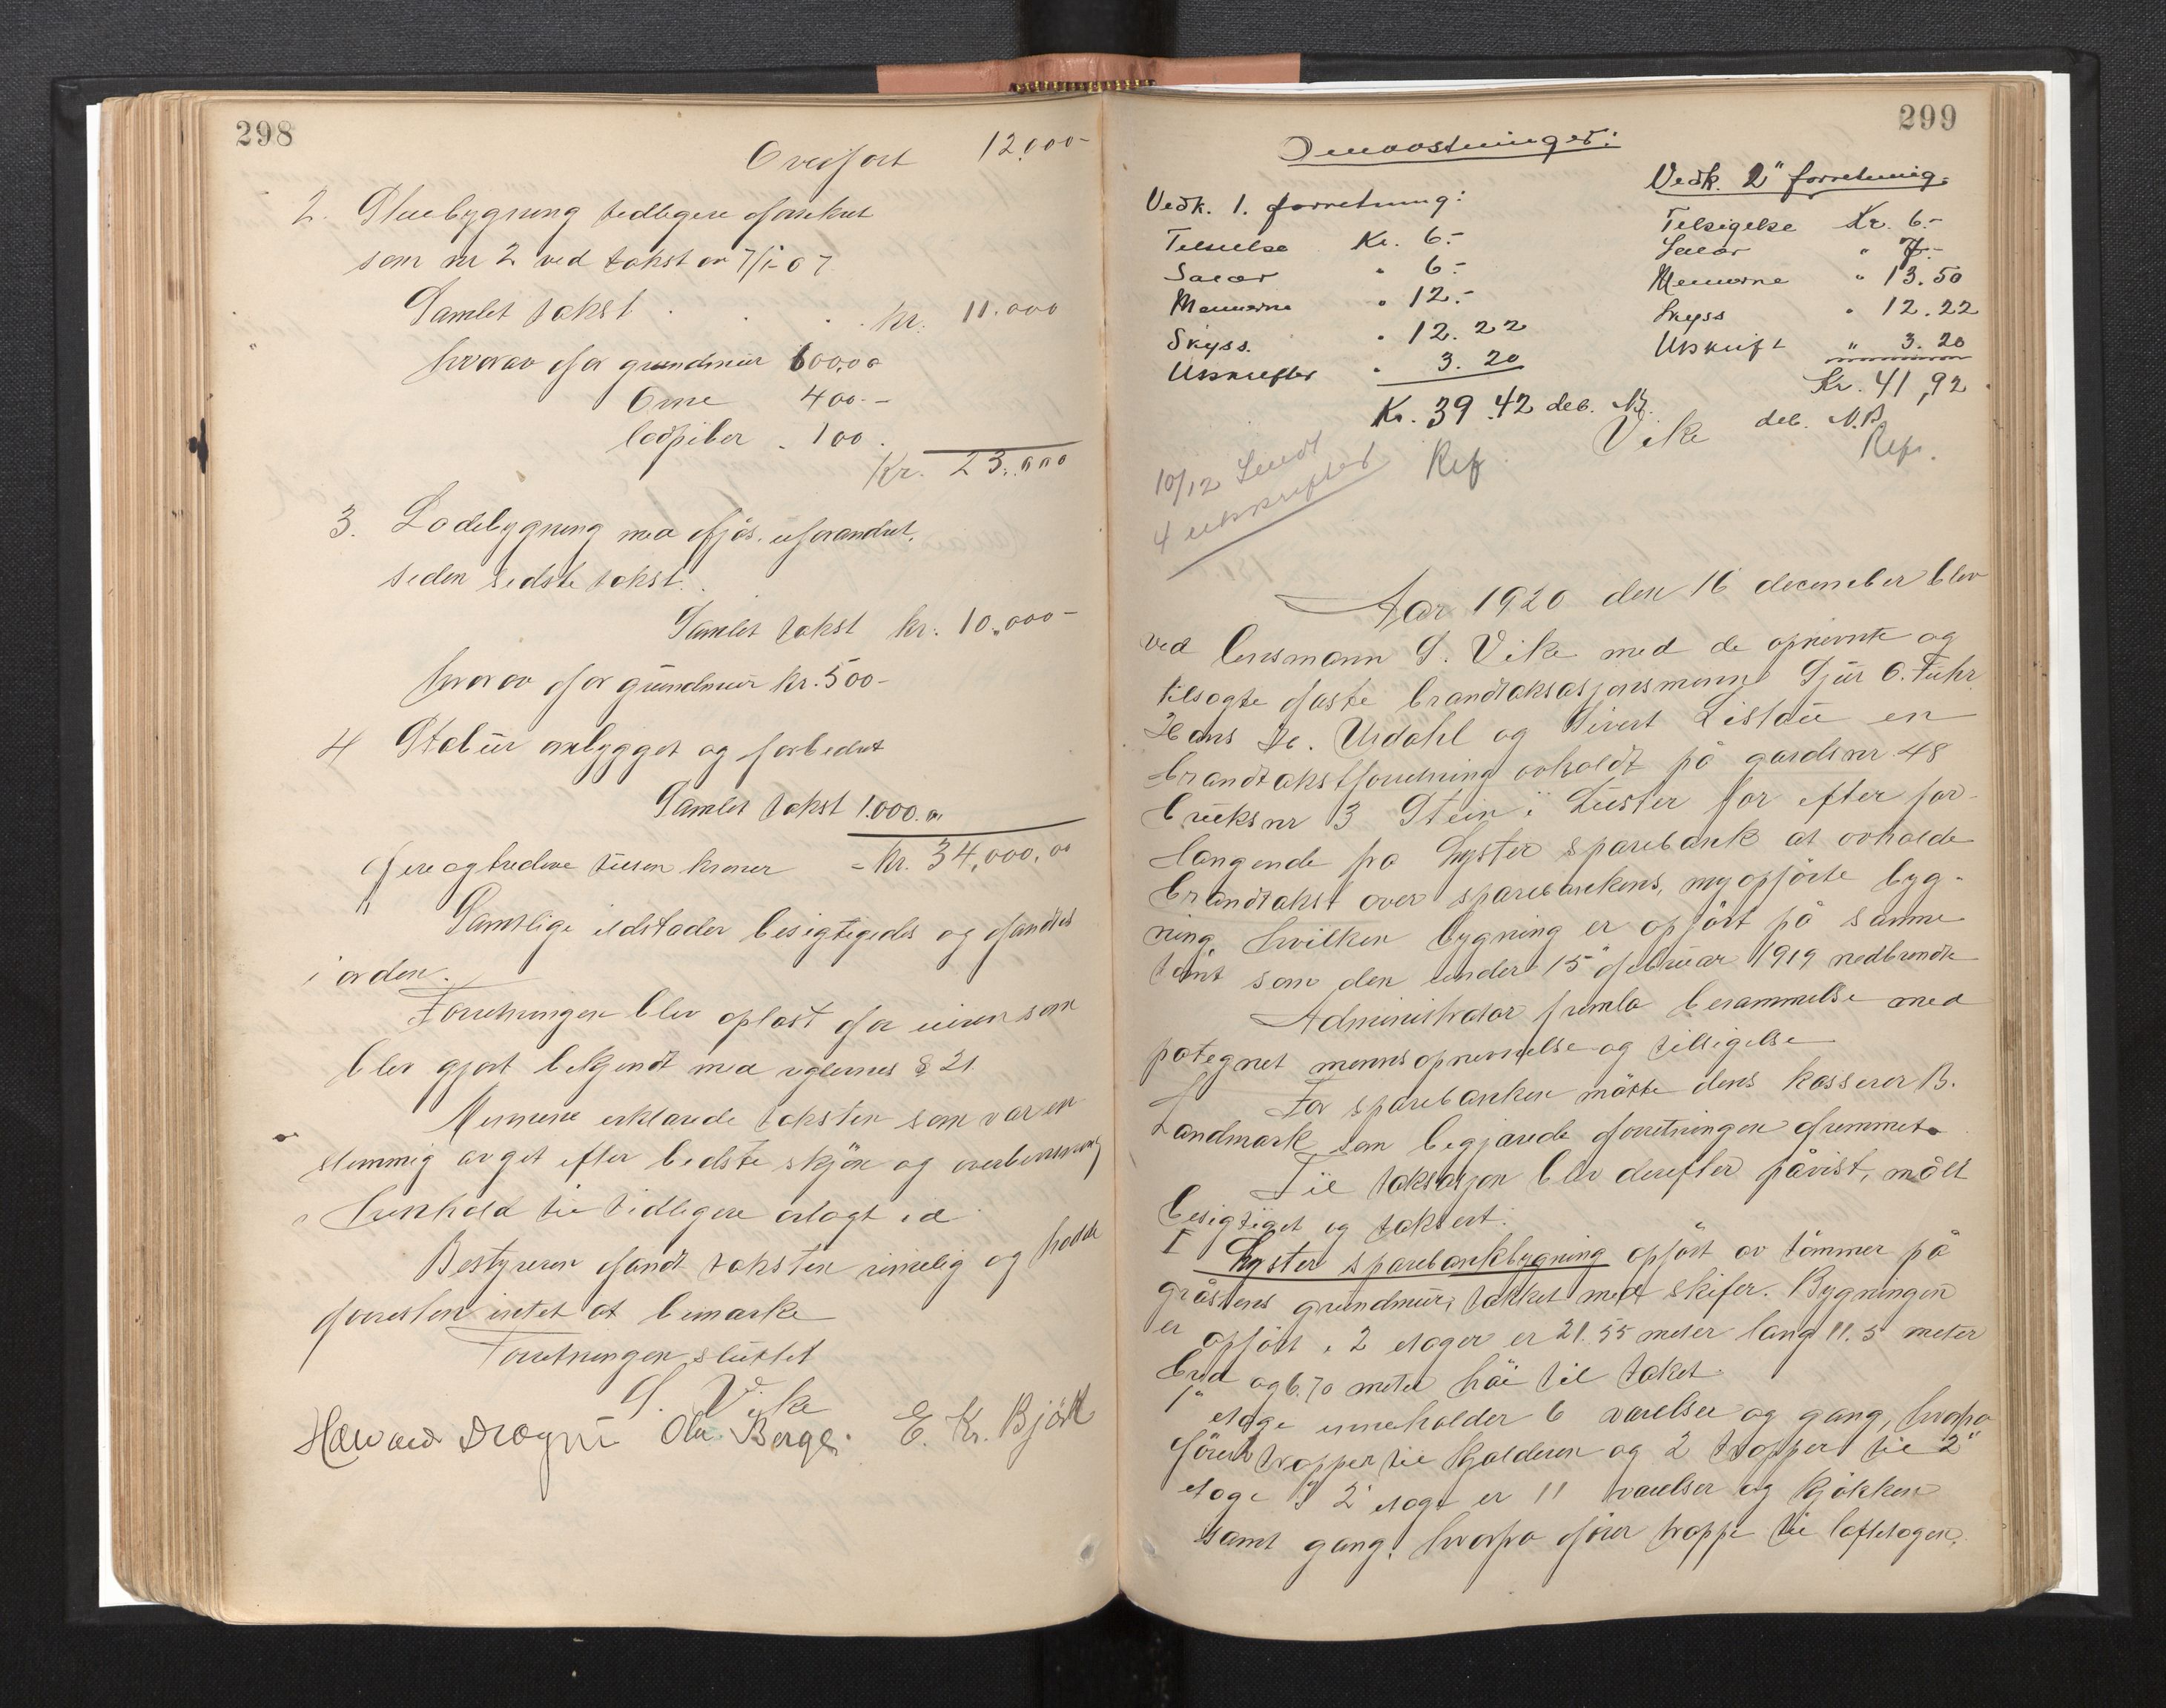 298
Overført 12,000-
2. Stuebygning tidligere forsikret
som nr 2 ved takst av 7/1-07
Samlet takst . . . kr. 11.000
hvorav for grundmur 600,00
Ovne 400.-
lodpiber . 100.
Kr. 23,000
3. Lodebygning med fjøs. uforandret.
siden sidste takst.
Samlet takst kr. 10,000-
hvorav for grundmur kr. 500-
4 Stabur ombygget og forbedret
Samlet takst 1.000.00
Fire og tredive tusen kroner = kr. 34,000,00
Samtlige ildsteder besigtigedes og fandtes
i orden.
Forretningen blev oplæst for eieren som
blev gjort bekjendt med reglernes § 21
Mennene erklærede taksten som var en
stemmig avget efter bedste skjøn og overbevisning
i henhold til tidligere avlagt ed
Bestyreren fandt taksten rimelig og hadde
forresten intet at bemærke
Forretningen sluttet
S. Vike
Havard Drægni Ola Berge. E. Kr. Bjørk
299
Omkostninger:
Vedk. 1. forretning:
Tilsielse Kr. 6.-
Salær " 6.-
Mennerne " 12.-
Skyss. " 12.22
Utskrifter " 3.20
Kr. 39.42 deb. N.B.
Ref.
Vedk. 2" forretning:
Tilsigelse Kr. 6.-
Salær " 7.-
Mennerne " 13.50
Skyss " 12.22
Utskrift " 3.20
Kr. 41,92
Vike deb. N.B.
Ref.
10/12 Sendt
4 utskrifter
Aar 1920 den 16 december blev
ved lensmann S. Vike med de opnevnte og
tilsagte faste brandtaksasjonsmenn Sjur O. Fuhr
Hans H. Urdahl og Sivert Lislau en
brandtakstforretning avholdt på gardsnr 48
bruksnr 3 Stein i Luster for efter for-
langende fra Lyster sparebank at avholde
brandtakst over sparebankens nyopførte byg-
ning hvilken bygning er opført på samme
tomt som den under 15" februar 1919 nedbrendte
Administrator fremla berammelse med
påtegnet mennsopnevnelse og tilsigelse
For sparebanken møtte dens kasserer B.
Landmark som begjærede forretningen fremmet.
Til taksasjon blev derefter påvist, målt
besigtiget og taksert:
I Lyster sparebankbygning opført av tømmer på
gråstens grundmur, takket med skifer. Bygningen
er opført i 2 etager er 21.55 meter lang 11.5 meter
bred og 6.70 meter høi til taket.
1" etage inneholder 6 værelser og gang, hvorfra
fører trapper til kjelderen og 2 trapper til 2"
etage I 2" etage er 11 værelser og kjøkken
samt gang, hvorfra fører trappe til loftetagen.